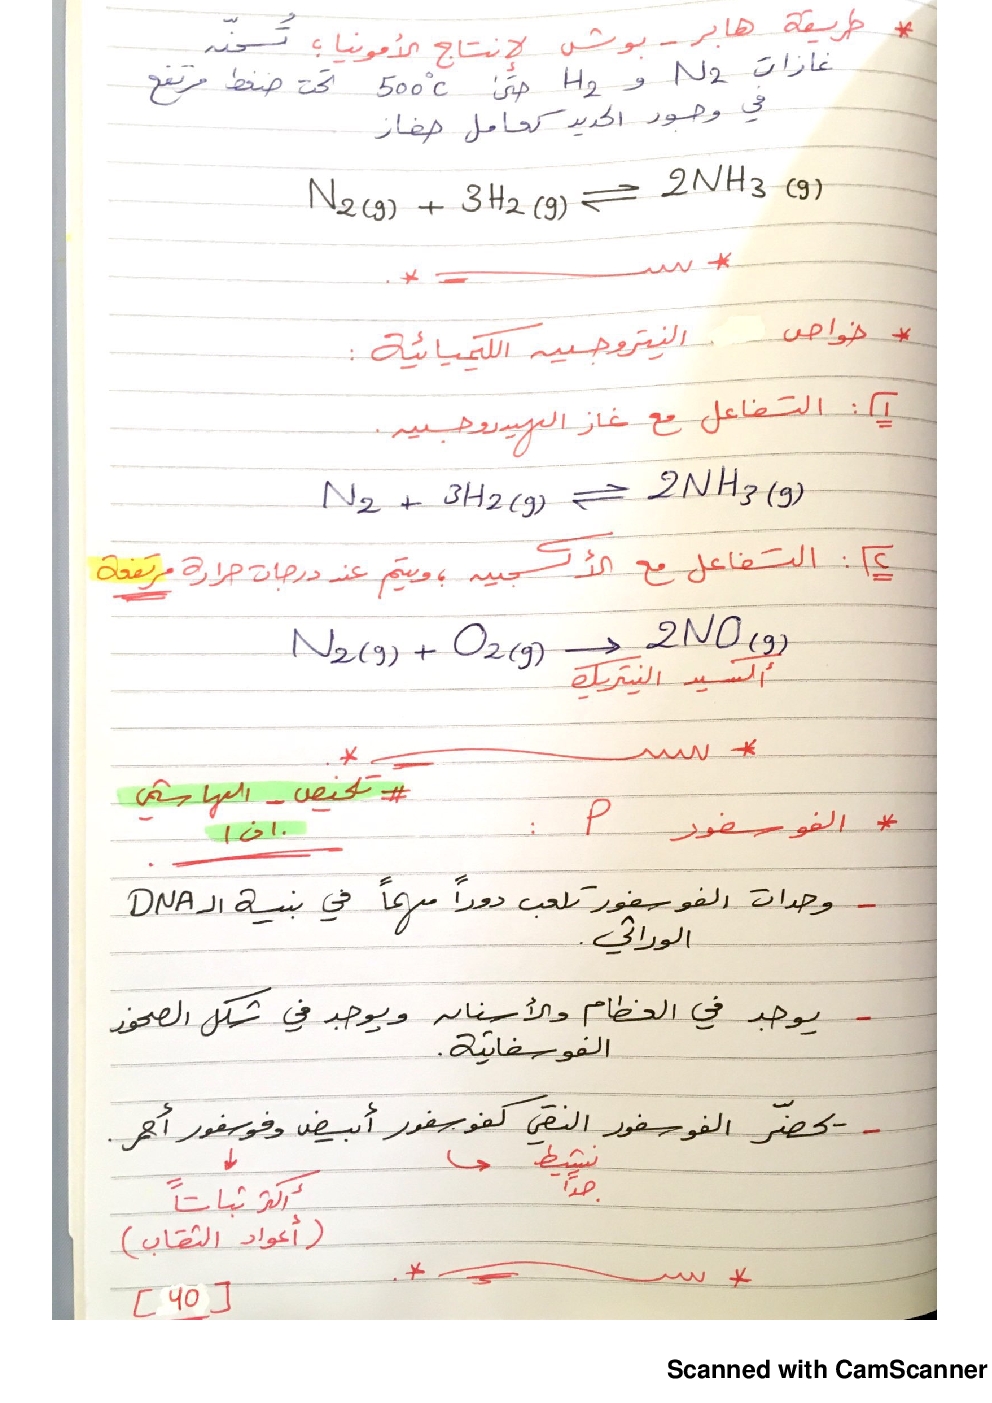 * طريقة هابر - بوش لإنتاج الأمونيا؛ تُسخّن
غازات N2 و H2 حتى 500°C تحت ضغط مرتفع
في وجود الحديد كعامل حفاز
N2(g) + 3H2(g) ⇌ 2NH3(g)
* خواص النيتروجين الكيميائية :
١ : التفاعل مع غاز الهيدروجين .
N2 + 3H2(g) ⇌ 2NH3(g)
٢ : التفاعل مع الأكسجين ، ويتم عند درجات حرارة مرتفعة
N2(g) + O2(g) → 2NO(g)
أكسيد النيتريك
# تلخيص - الهاشمي
* الفوسفور P :
- وحدات الفوسفور تلعب دوراً مهماً في بنية الـ DNA
الوراثي .
- يوجد في العظام والأسنان ويوجد في شكل الصخور
الفوسفاتية .
- يحضّر الفوسفور النقي كفوسفور أبيض وفوسفور أحمر .
نشيط
جداً
أكثر ثباتاً
(أعواد الثقاب)
[40]
Scanned with CamScanner